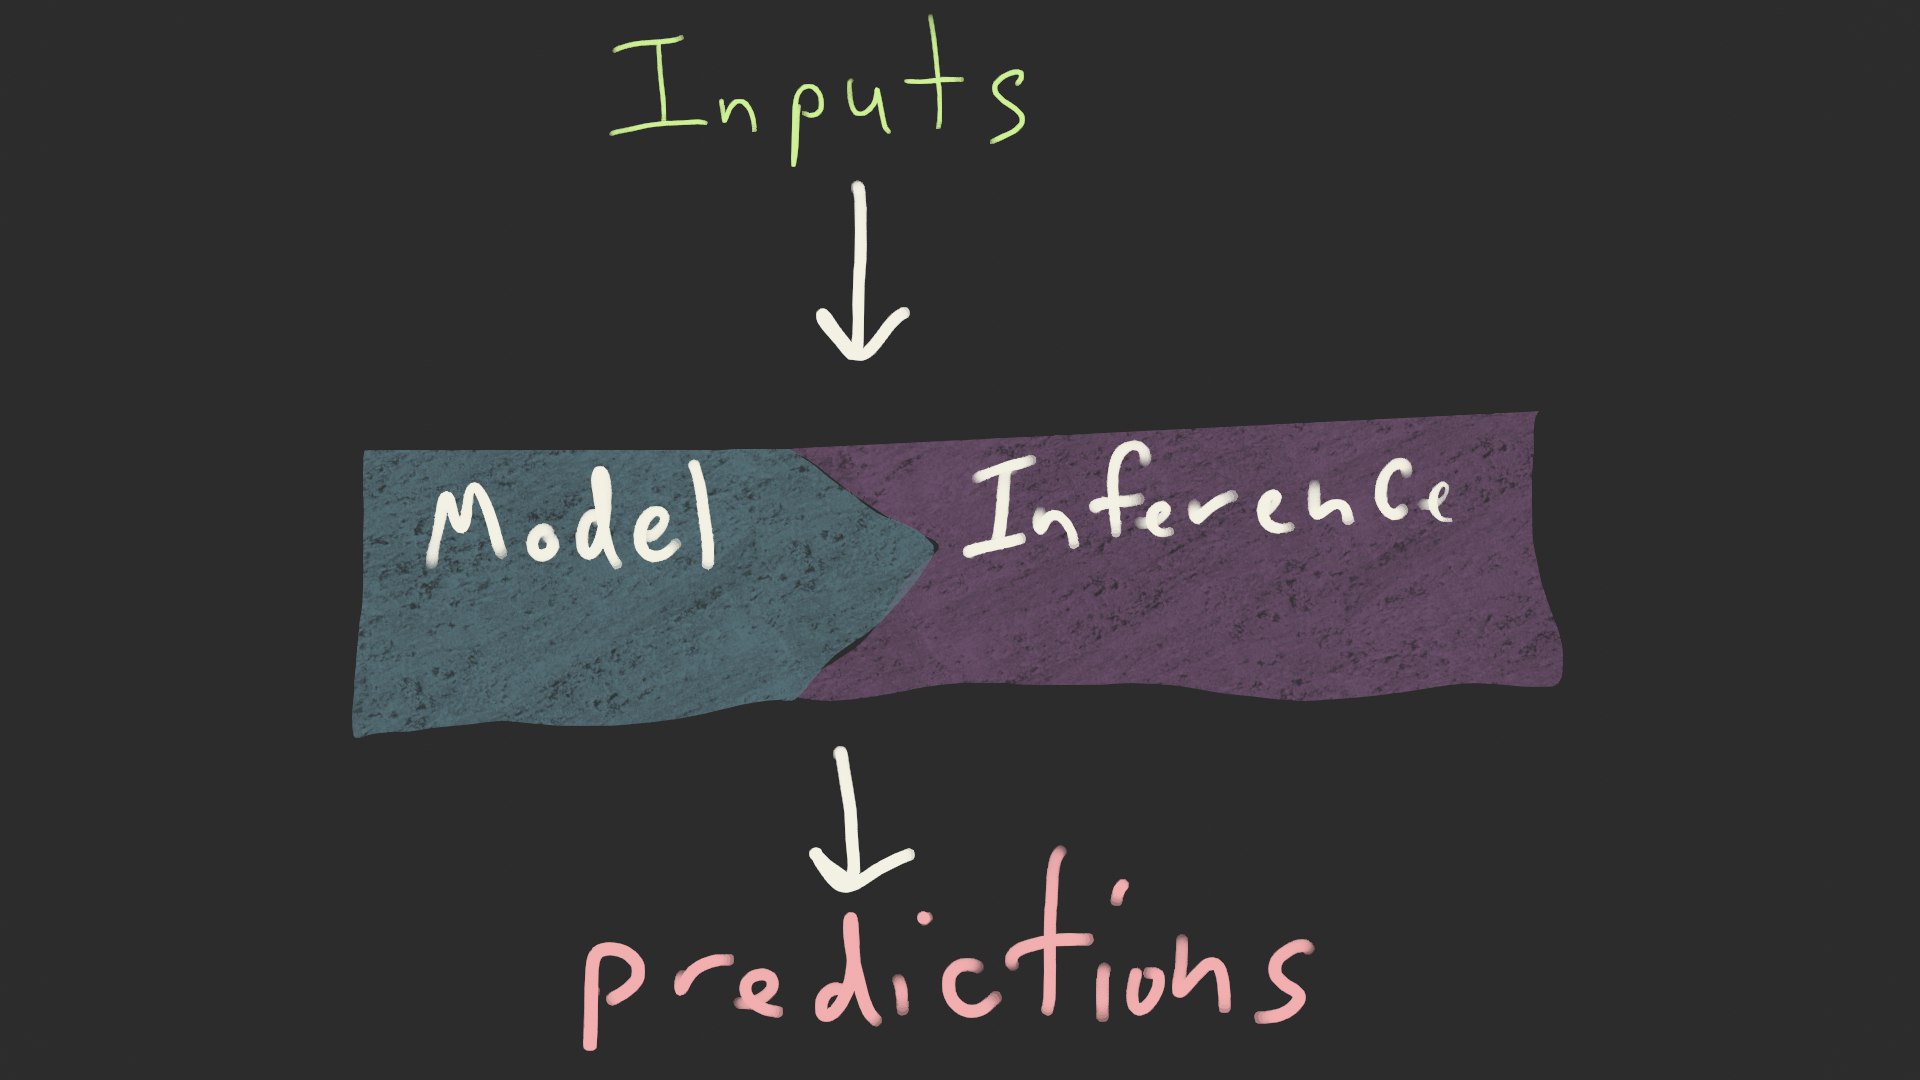 Inputs
Model Inference
predictions